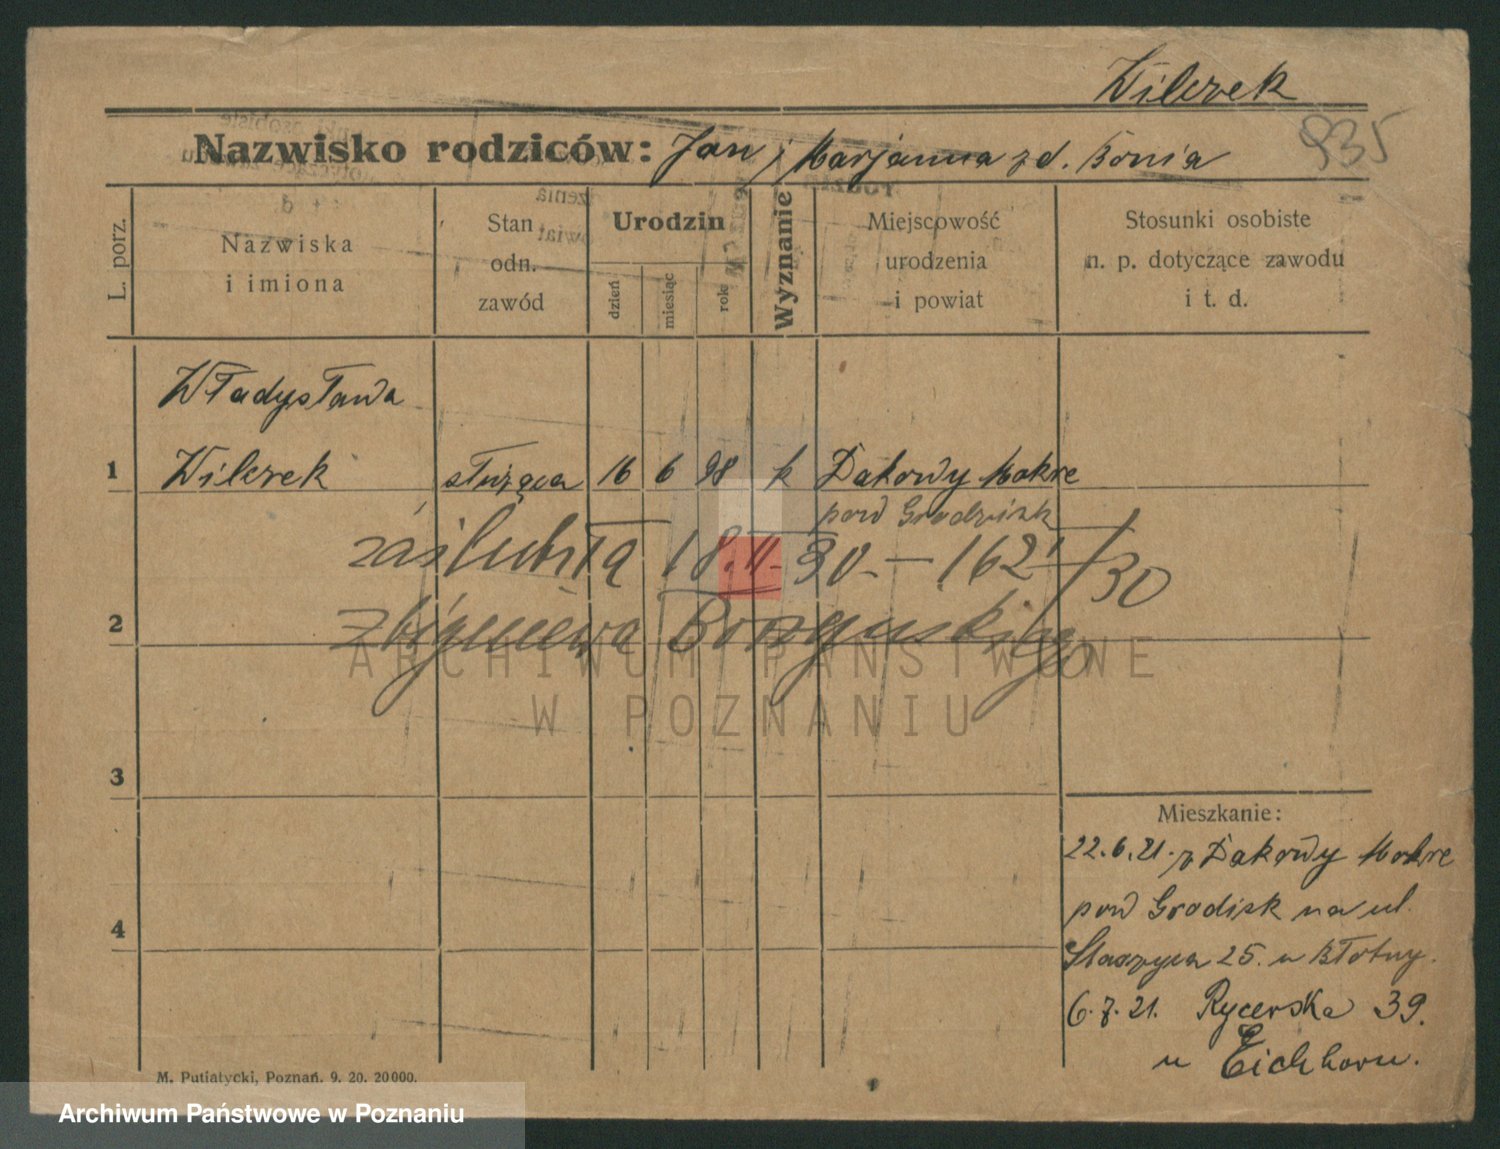 Wilczek
935
Nazwisko rodziców: Jan i Marjanna zd. Bonia
L. porz.
Nazwiska
i imiona
Stan
odn.
zawód
Urodzin
dzień
miesiąc
rok
Wyznanie
Miejscowość
urodzenia
i powiat
Stosunki osobiste
n. p. dotyczące zawodu
i t. d.
Władysława
1 Wilczek służąca 16 6 98 k Dakowy Mokre
pow Grodzisk
zaślubiła 18.II.30. — 162 I/30
2 Zbigniewa
ARCHIWUM PAŃSTWOWE
W POZNANIU
3
Mieszkanie:
22.6.21. z Dakowy Mokre
pow Grodzisk na ul.
4
Staszyca 25. u Błotny.
6.7.21. Rycerska 39.
u Eichhorn.
M. Putiatycki, Poznań. 9. 20. 20000.
Archiwum Państwowe w Poznaniu